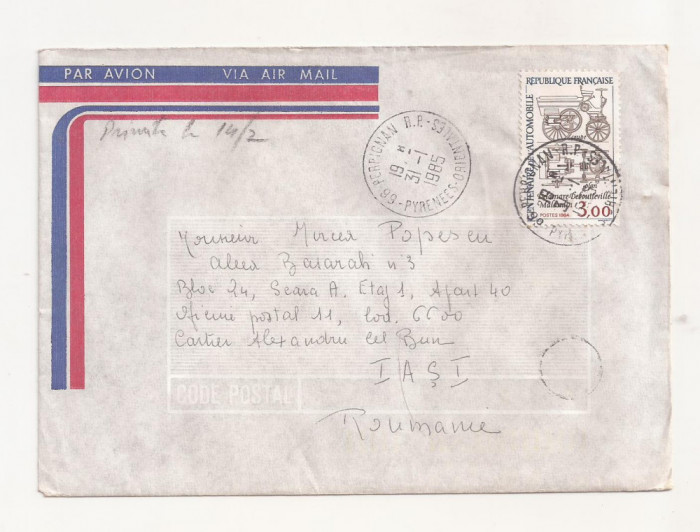 PAR AVION VIA AIR MAIL
RÉPUBLIQUE FRANÇAISE
CENTENAIRE AUTOMOBILE
Delamare-Deboutteville
Malandin
3,00
POSTES 1984
66-PERPIGNAN R.P.
PYRENEES-ORIENTALES
19 H
31-1
1985
66-PERPIGNAN R.P.
le 14/2
Monsieur Mircea Popescu
Aleea Basarab n°3
Bloc 24, Scara A. Etaj 1, Apart 40
Oficiul postal 11, Cod. 6600
Cartier Alexandru cel Bun
IAŞI
CODE POSTAL
Roumanie